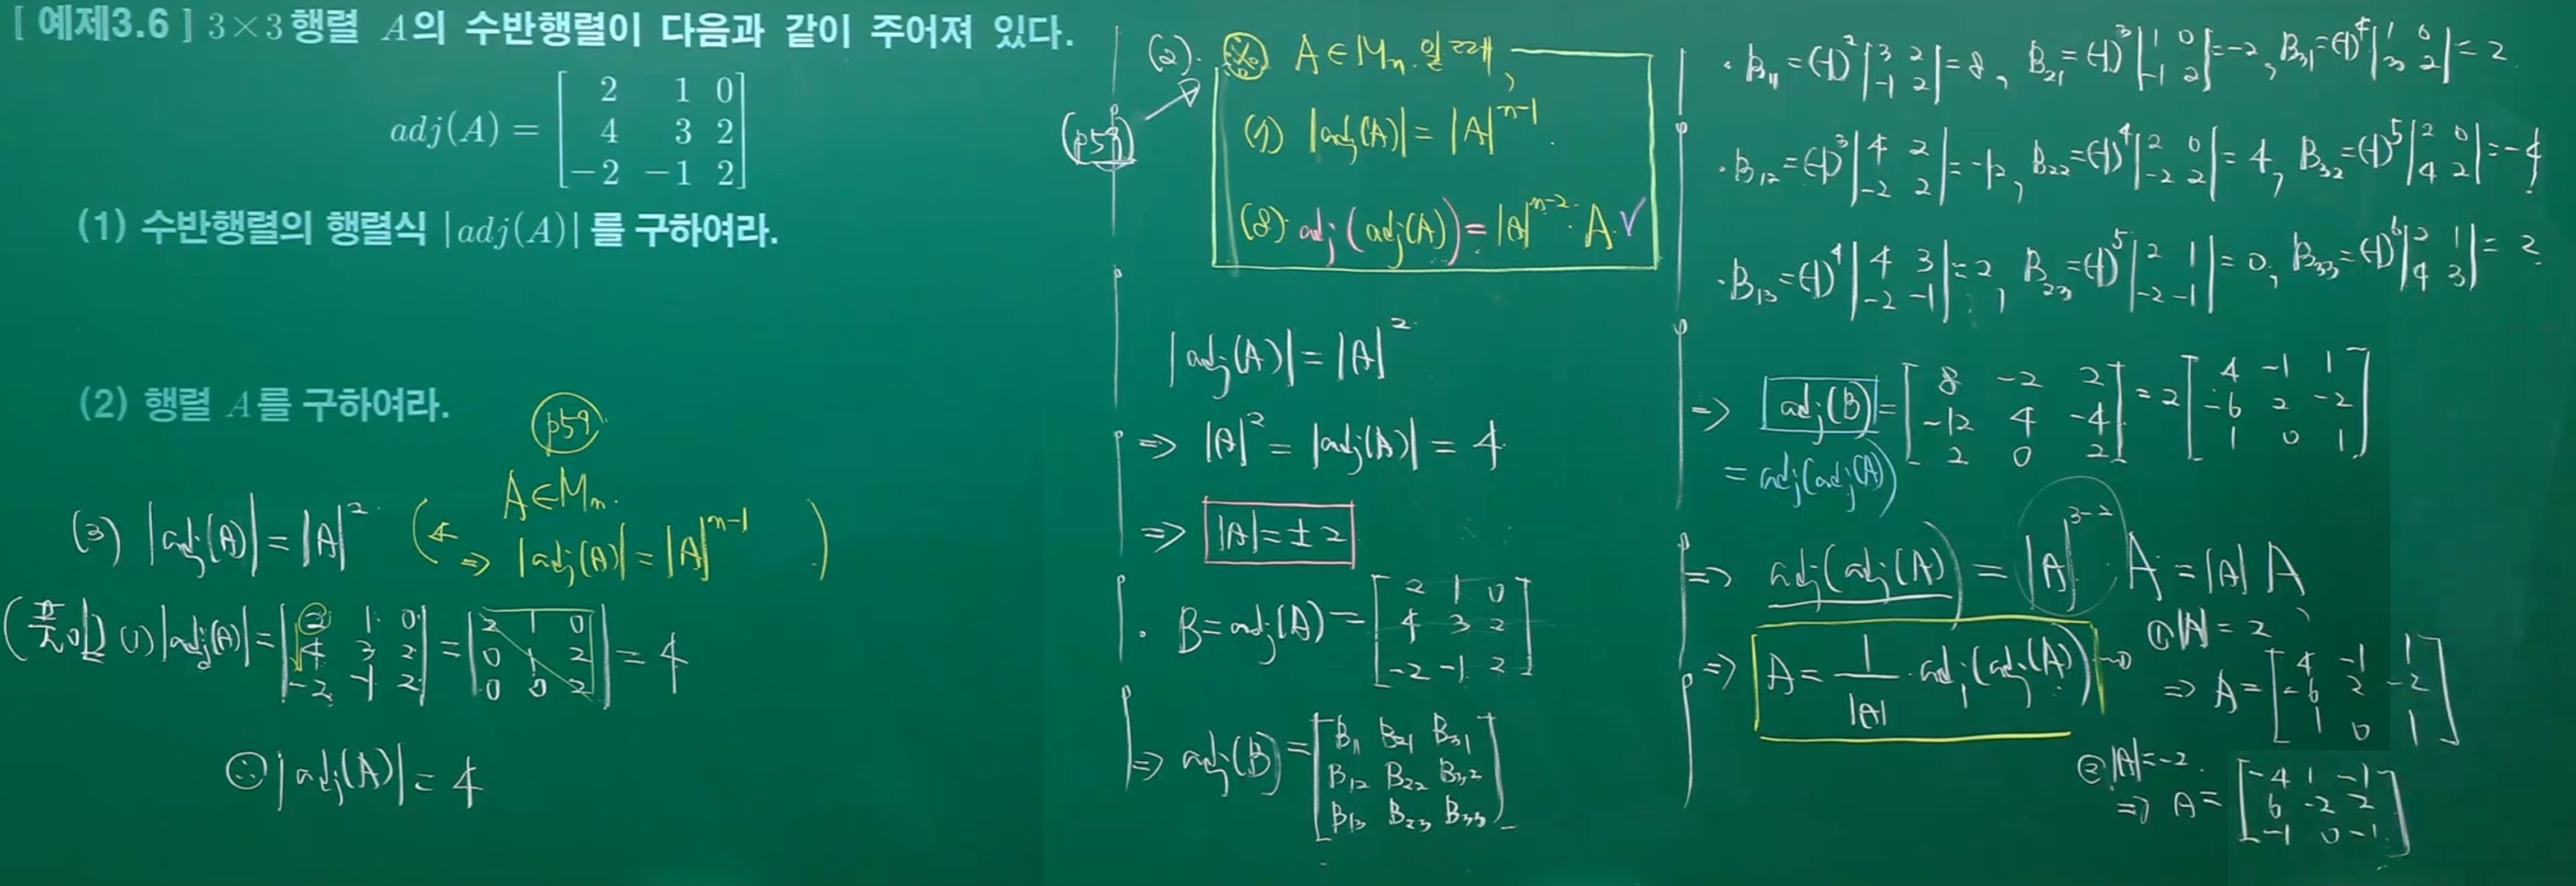 [ 예제3.6 ] 3×3행렬 A의 수반행렬이 다음과 같이 주어져 있다.
adj(A) = [2 1 0
4 3 2
-2 -1 2]
(1) 수반행렬의 행렬식 |adj(A)|를 구하여라.
(2) 행렬 A를 구하여라.
p59
A∈Mₙ.
(3) |adj(A)| = |A|² ( ⇒ |adj(A)| = |A|ⁿ⁻¹ )
(풀이) (1) |adj(A)| = |2 1 0
4 3 2
-2 -1 2| = |2 1 0
0 1 2
0 0 2| = 4
∴ |adj(A)| = 4
(2). ※ A∈Mₙ. 일 때,
(p59)
(7) |adj(A)| = |A|ⁿ⁻¹.
(8) adj(adj(A)) = |A|ⁿ⁻²·A. ✓
|adj(A)| = |A|²
⇒ |A|² = |adj(A)| = 4
⇒ |A| = ±2
· B = adj(A) = [2 1 0
4 3 2
-2 -1 2]
⇒ adj(B) = [B₁₁ B₂₁ B₃₁
B₁₂ B₂₂ B₃₂
B₁₃ B₂₃ B₃₃]
· B₁₁ = (-1)² |3 2
-1 2| = 8, B₂₁ = (-1)³ |1 0
-1 2| = -2, B₃₁ = (-1)⁴ |1 0
3 2| = 2
· B₁₂ = (-1)³ |4 2
-2 2| = -12, B₂₂ = (-1)⁴ |2 0
-2 2| = 4, B₃₂ = (-1)⁵ |2 0
4 2| = -4
· B₁₃ = (-1)⁴ |4 3
-2 -1| = 2, B₂₃ = (-1)⁵ |2 1
-2 -1| = 0, B₃₃ = (-1)⁶ |2 1
4 3| = 2
⇒ adj(B) = [8 -2 2
-12 4 -4
2 0 2] = 2 [4 -1 1
-6 2 -2
1 0 1]
= adj(adj(A))
⇒ adj(adj(A)) = |A|³⁻²·A = |A| A
⇒ A = 1/|A| · adj(adj(A))
① |A| = 2
⇒ A = [4 -1 1
-6 2 -2
1 0 1]
② |A| = -2.
⇒ A = [-4 1 -1
6 -2 2
-1 0 -1]